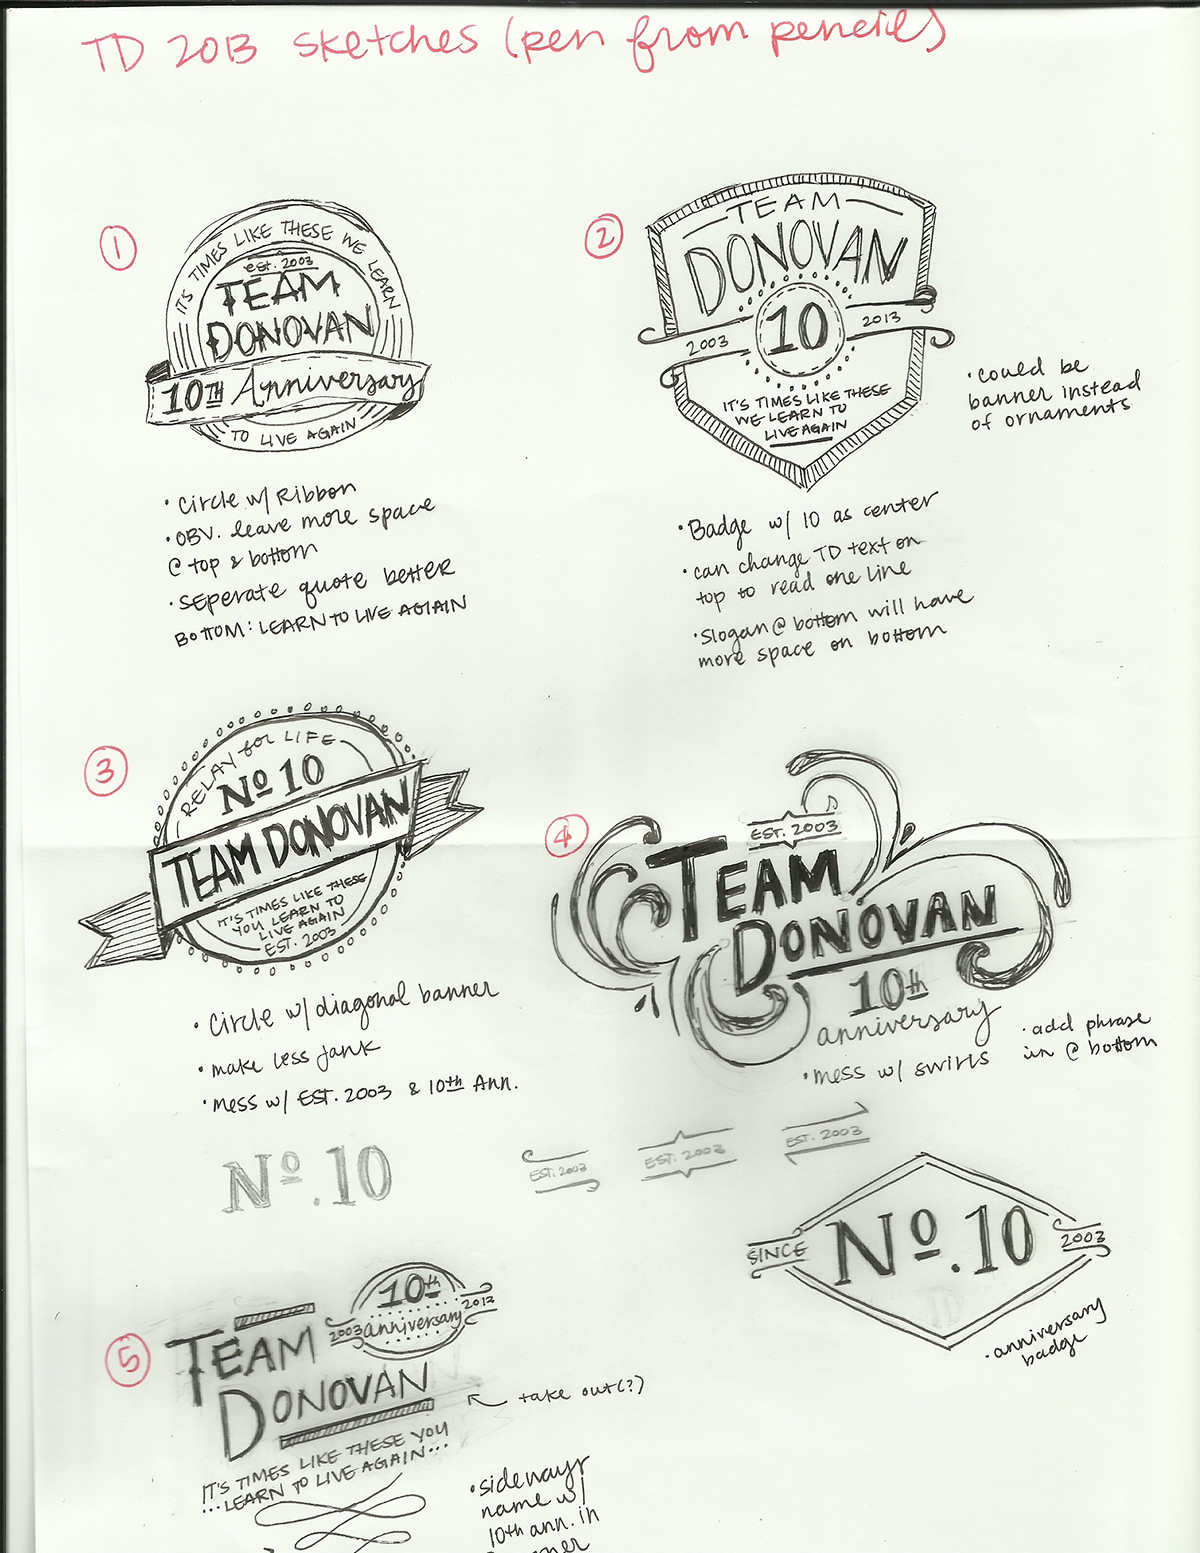 TD 2013 sketches (pen from pencil)
1
IT'S TIMES LIKE THESE WE LEARN
est. 2003
TEAM
DONOVAN
10TH Anniversary
TO LIVE AGAIN
• Circle w/ Ribbon
• OBV. leave more space
@ top & bottom
• SEPERATE quote better
BOTTOM: LEARN TO LIVE AGIAIN
2
TEAM
DONOVAN
2003 10 2013
IT'S TIMES LIKE THESE
WE LEARN TO
LIVE AGAIN
• could be
banner instead
of ornaments
• Badge w/ 10 as center
• can change TD text on
top to read one line
• Slogan @ bottom will have
more space on bottom
3
RELAY for LIFE
No 10
TEAM DONOVAN
IT'S TIMES LIKE THESE
YOU LEARN TO
LIVE AGAIN
EST. 2003
• Circle w/ diagonal banner
• make less jank
• mess w/ EST. 2003 & 10th Ann.
4
EST. 2003
TEAM
DONOVAN
10th
anniversary
• mess w/ swirls
• add phrase
in @ bottom
No.10
EST. 2003
EST. 2003
EST. 2003
SINCE No.10 2003
• anniversary
badge
5
10th
2003 anniversary 2013
TEAM
DONOVAN
take out(?)
IT'S TIMES LIKE THESE YOU
...LEARN TO LIVE AGAIN...
• sideways
name w/
10th ann. in